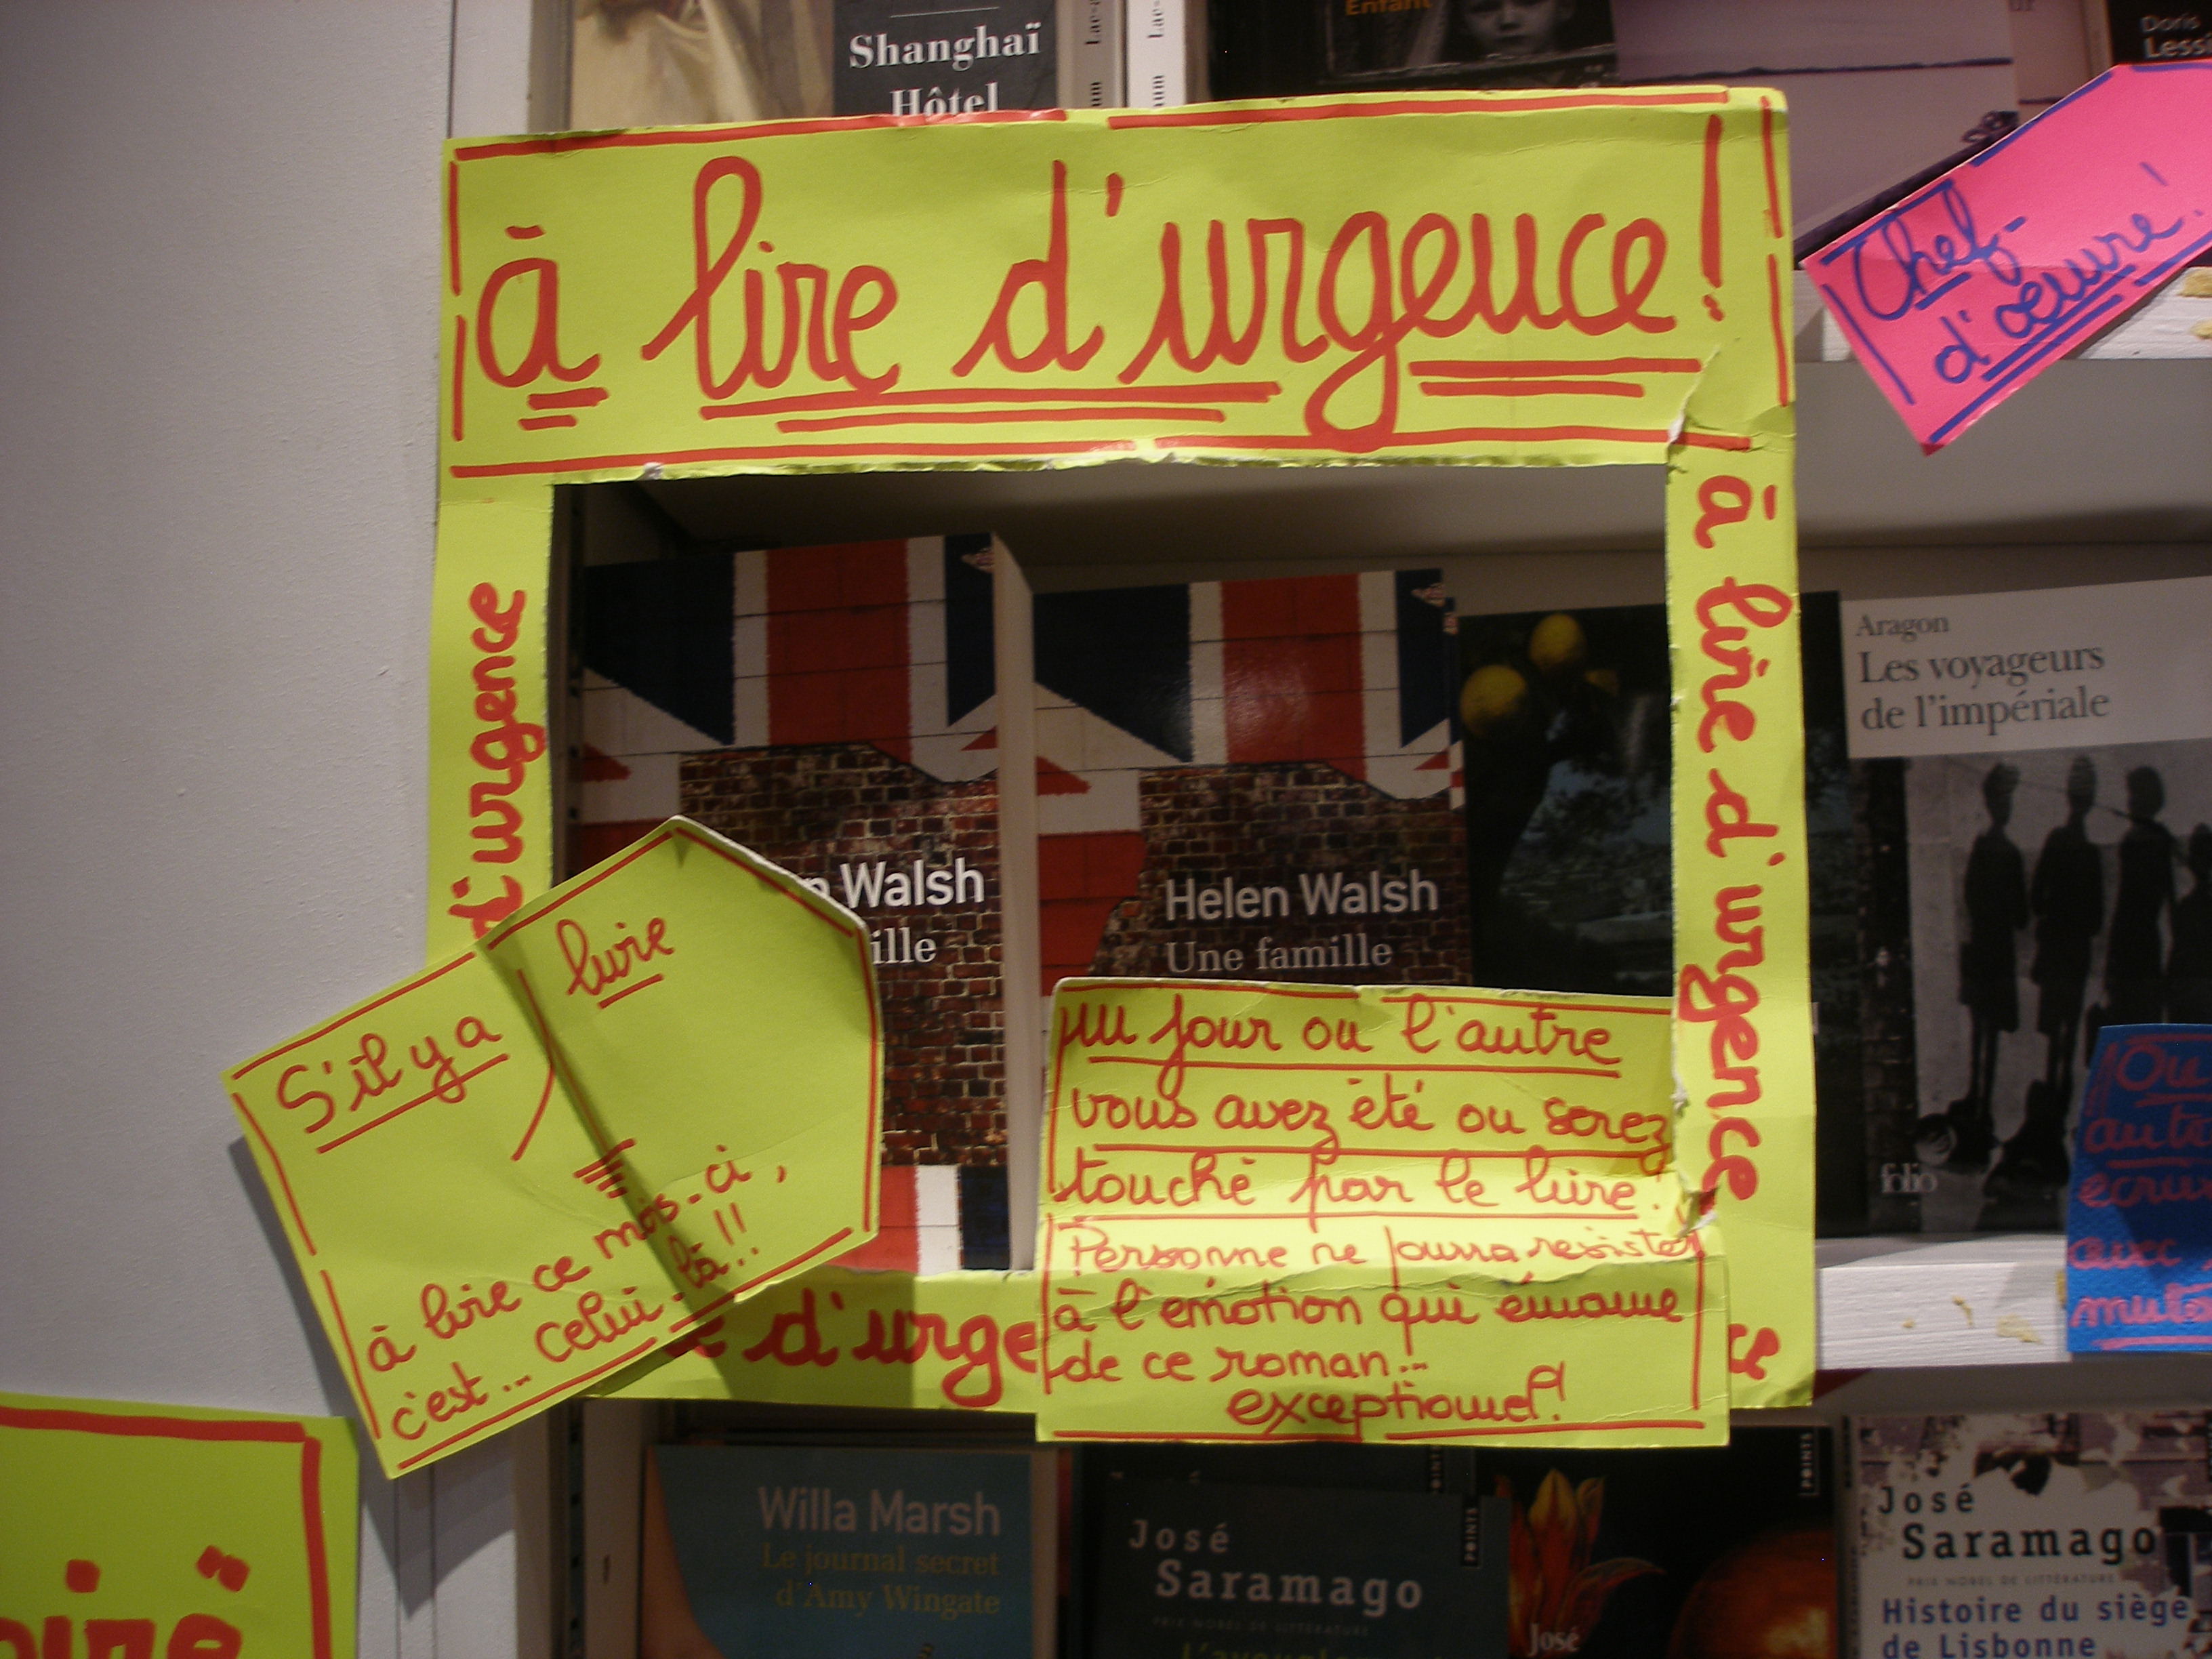 Shanghaï
Hôtel
Enfant
Doris
Less
à lire d'urgence!
Chef-
d'oeuvre!
d'urgence
à lire d'urgence
Aragon
Les voyageurs
de l'impériale
n Walsh
ille
Helen Walsh
Une famille
folio
livre
S'il y a
à lire ce mois-ci,
c'est... celui-là!!
un jour ou l'autre
vous avez été ou serez
touché par le livre!
Personne ne pourra resister
à l'émotion qui émane
de ce roman...
exceptionnel!
e d'urge
ce
avec
Willa Marsh
Le journal secret
d'Amy Wingate
José
Saramago
PRIX NOBEL DE LITTÉRATURE
POINTS
José
POINTS
José
Saramago
PRIX NOBEL DE LITTÉRATURE
Histoire du siège
de Lisbonne